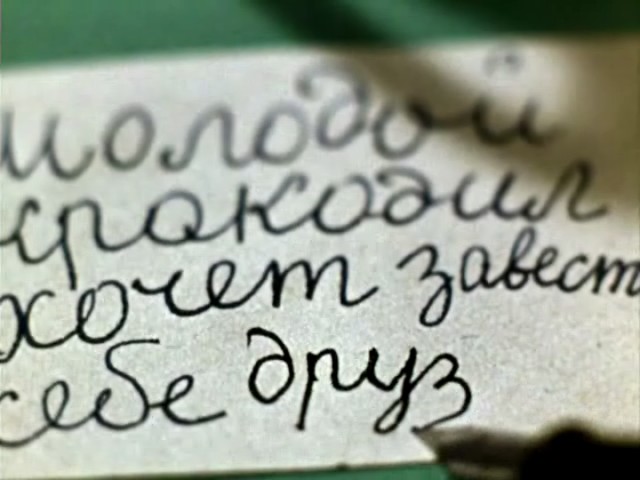 молодой
крокодил
хочет завест
себе друз